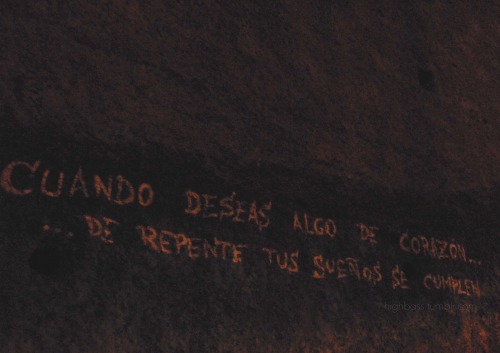 CUANDO DESEAS ALGO DE CORAZÓN...
... DE REPENTE TUS SUEÑOS SE CUMPLEN